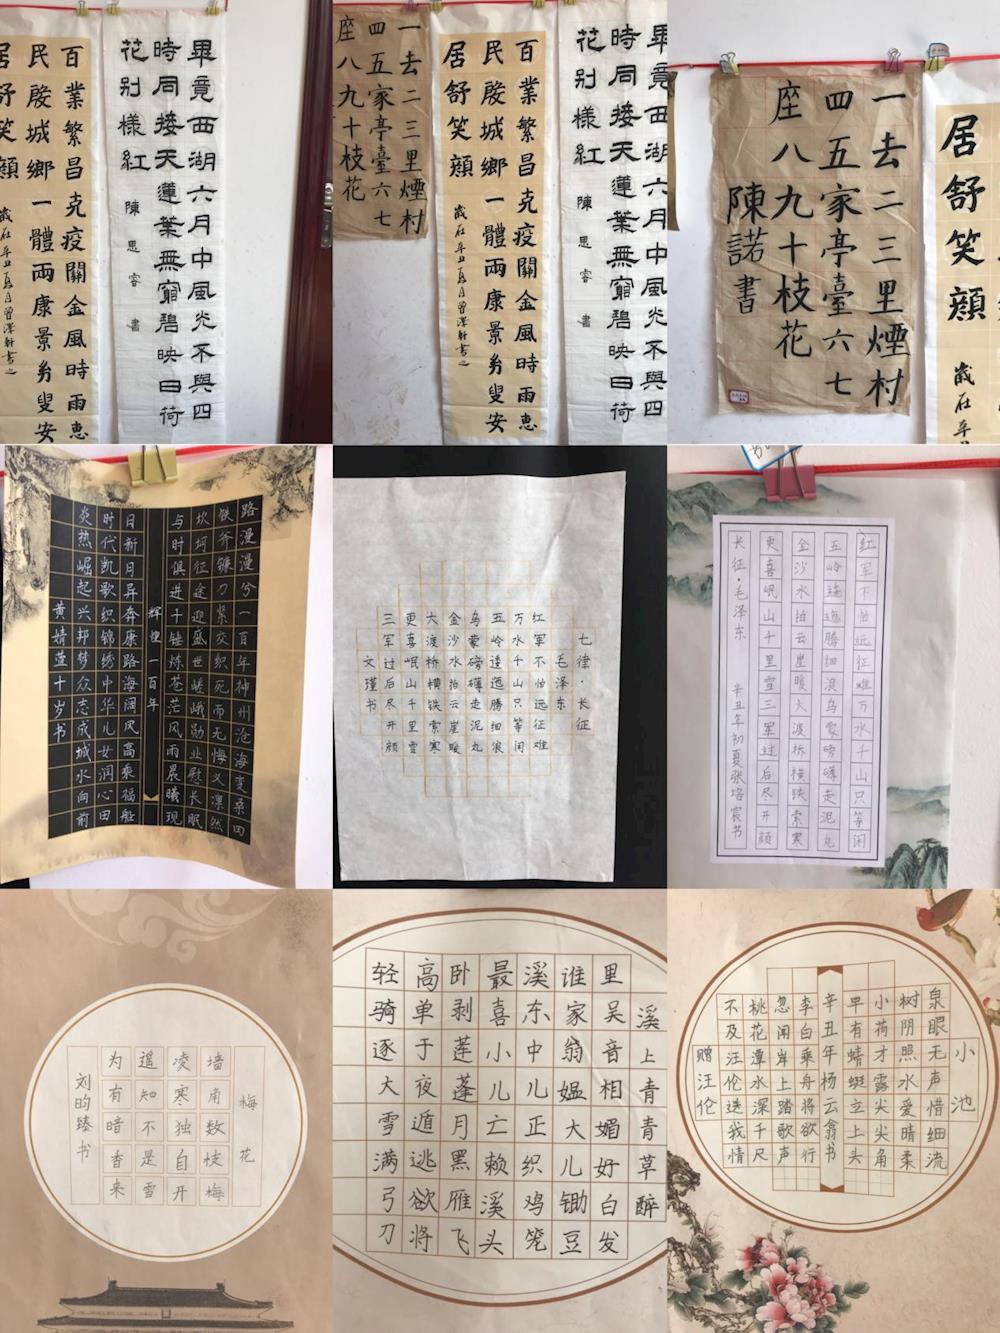 畢竟西湖六月中風光不與四
時同接天蓮葉無窮碧映日荷
花别樣紅
陳思睿書
百業繁昌克疫關金風時雨惠
民殷城鄉一體兩康景剪叟安
居舒笑顔
畢竟西湖六月中風光不與四
時同接天蓮葉無窮碧映日荷
花别樣紅
陳思睿書
百業繁昌克疫關金風時雨惠
民殷城鄉一體兩康景剪叟安
居舒笑顔
一去二三里煙村
四五家亭臺六七
座八九十枝花
居舒笑顔
一去二三里煙村
四五家亭臺六七
座八九十枝花
陳諾書
路漫漫兮一百年神州沧海变桑田
铁斧镰刀紧交织死而无悔义凛然
坎坷征途迎盛世嵯峨勋业慰长眠
与时俱进千锤炼苍茫风雨晨曦现
辉煌一百年
日新日异奔康路海阔风高乘福船
时代凯歌织锦绣中华儿女润心田
炎热崛起兴邦梦众志成城水向前
黄婧萱十岁书
七律·长征
毛泽东
红军不怕远征难
万水千山只等闲
五岭逶迤腾细浪
乌蒙磅礴走泥丸
金沙水拍云崖暖
大渡桥横铁索寒
更喜岷山千里雪
三军过后尽开颜
文瑾书
红军不怕远征难万水千山只等闲
五岭逶迤腾细浪乌蒙磅礴走泥丸
金沙水拍云崖暖大渡桥横铁索寒
更喜岷山千里雪三军过后尽开颜
长征·毛泽东
辛丑年初夏张培宸书
梅花
墙角数枝梅
凌寒独自开
遥知不是雪
为有暗香来
刘昀臻书
溪上青青草醉
里吴音相媚好白发
谁家翁媪大儿锄豆
溪东中儿正织鸡笼
最喜小儿亡赖溪头
卧剥莲蓬月黑雁飞
高单于夜遁逃欲将
轻骑逐大雪满弓刀
小池
泉眼无声惜细流
树阴照水爱晴柔
小荷才露尖尖角
早有蜻蜓立上头
辛丑年杨云翕书
李白乘舟将欲行
忽闻岸上踏歌声
桃花潭水深千尺
不及汪伦送我情
赠汪伦